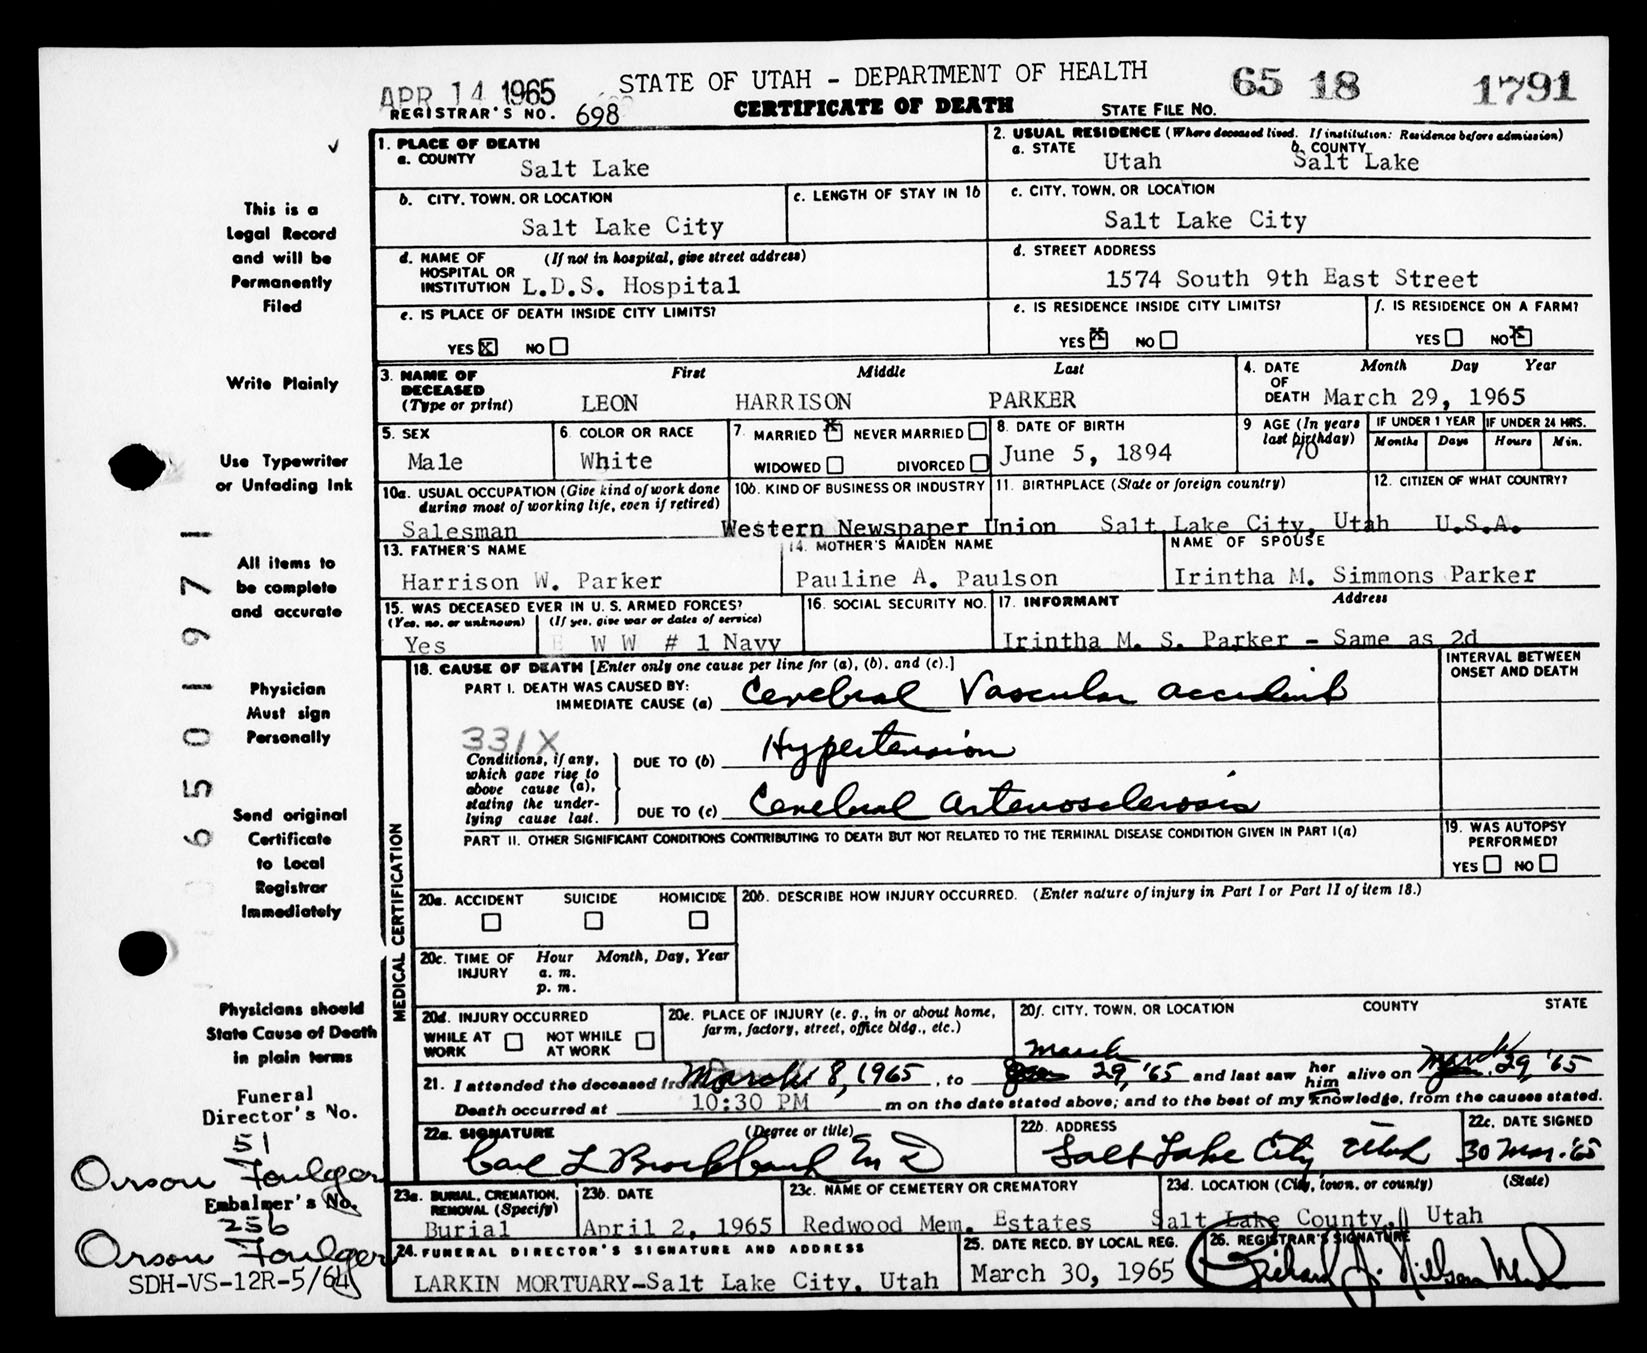 APR 14 1965
STATE OF UTAH - DEPARTMENT OF HEALTH
65 18 1791
REGISTRAR'S NO. 698
CERTIFICATE OF DEATH
STATE FILE NO.
1. PLACE OF DEATH
a. COUNTY Salt Lake
2. USUAL RESIDENCE (Where deceased lived. If institution: Residence before admission)
a. STATE Utah b. COUNTY Salt Lake
b. CITY, TOWN, OR LOCATION Salt Lake City
c. LENGTH OF STAY IN 1b
c. CITY, TOWN, OR LOCATION Salt Lake City
d. NAME OF HOSPITAL OR INSTITUTION (If not in hospital, give street address) L.D.S. Hospital
d. STREET ADDRESS 1574 South 9th East Street
e. IS PLACE OF DEATH INSIDE CITY LIMITS?
YES X NO
e. IS RESIDENCE INSIDE CITY LIMITS?
YES X NO
f. IS RESIDENCE ON A FARM?
YES NO X
3. NAME OF DECEASED (Type or print)
First Middle Last
LEON HARRISON PARKER
4. DATE OF DEATH Month Day Year
March 29, 1965
5. SEX Male
6. COLOR OR RACE White
7. MARRIED X NEVER MARRIED
WIDOWED DIVORCED
8. DATE OF BIRTH June 5, 1894
9 AGE (In years last birthday) 70
IF UNDER 1 YEAR IF UNDER 24 HRS.
Months Days Hours Min.
10a. USUAL OCCUPATION (Give kind of work done during most of working life, even if retired)
Salesman
10b. KIND OF BUSINESS OR INDUSTRY
Western Newspaper Union
11. BIRTHPLACE (State or foreign country)
Salt Lake City, Utah
12. CITIZEN OF WHAT COUNTRY?
U.S.A.
13. FATHER'S NAME
Harrison W. Parker
14. MOTHER'S MAIDEN NAME
Pauline A. Paulson
NAME OF SPOUSE
Irintha M. Simmons Parker
15. WAS DECEASED EVER IN U. S. ARMED FORCES?
(Yes, no, or unknown) (If yes, give war or dates of service)
Yes W W # 1 Navy
16. SOCIAL SECURITY NO.
17. INFORMANT Address
Irintha M. S. Parker - Same as 2d
MEDICAL CERTIFICATION
18. CAUSE OF DEATH [Enter only one cause per line for (a), (b), and (c).]
INTERVAL BETWEEN ONSET AND DEATH
PART I. DEATH WAS CAUSED BY:
IMMEDIATE CAUSE (a) Cerebral Vascular accident
331X
Conditions, if any, which gave rise to above cause (a), stating the underlying cause last.
DUE TO (b) Hypertension
DUE TO (c) Cerebral arteriosclerosis
PART II. OTHER SIGNIFICANT CONDITIONS CONTRIBUTING TO DEATH BUT NOT RELATED TO THE TERMINAL DISEASE CONDITION GIVEN IN PART I(a)
19. WAS AUTOPSY PERFORMED?
YES NO
20a. ACCIDENT SUICIDE HOMICIDE
20b. DESCRIBE HOW INJURY OCCURRED. (Enter nature of injury in Part I or Part II of item 18.)
20c. TIME OF INJURY Hour Month, Day, Year
a. m.
p. m.
20d. INJURY OCCURRED
WHILE AT WORK NOT WHILE AT WORK
20e. PLACE OF INJURY (e. g., in or about home, farm, factory, street, office bldg., etc.)
20f. CITY, TOWN, OR LOCATION COUNTY STATE
21. I attended the deceased from March 8, 1965, to March 29, '65 and last saw her him alive on March 29, '65
Death occurred at 10:30 PM m on the date stated above; and to the best of my knowledge, from the causes stated.
22a. SIGNATURE (Degree or title)
Carl L Brockbank M D
22b. ADDRESS
Salt Lake City Utah
22c. DATE SIGNED
30 Mar. '65
23a. BURIAL, CREMATION, REMOVAL (Specify)
Burial
23b. DATE
April 2, 1965
23c. NAME OF CEMETERY OR CREMATORY
Redwood Mem. Estates
23d. LOCATION (City, town, or county) (State)
Salt Lake County, Utah
24. FUNERAL DIRECTOR'S SIGNATURE AND ADDRESS
LARKIN MORTUARY-Salt Lake City, Utah
25. DATE RECD. BY LOCAL REG.
March 30, 1965
26. REGISTRAR'S SIGNATURE
Richard J. Nilson MD
This is a
Legal Record
and will be
Permanently
Filed
Write Plainly
Use Typewriter
or Unfading Ink
All items to
be complete
and accurate
Physician
Must sign
Personally
Send original
Certificate
to Local
Registrar
Immediately
Physicians should
State Cause of Death
in plain terms
Funeral
Director's No.
51
Orson Foulger
Embalmer's No.
256
Orson Foulger
SDH-VS-12R-5/64
6501971